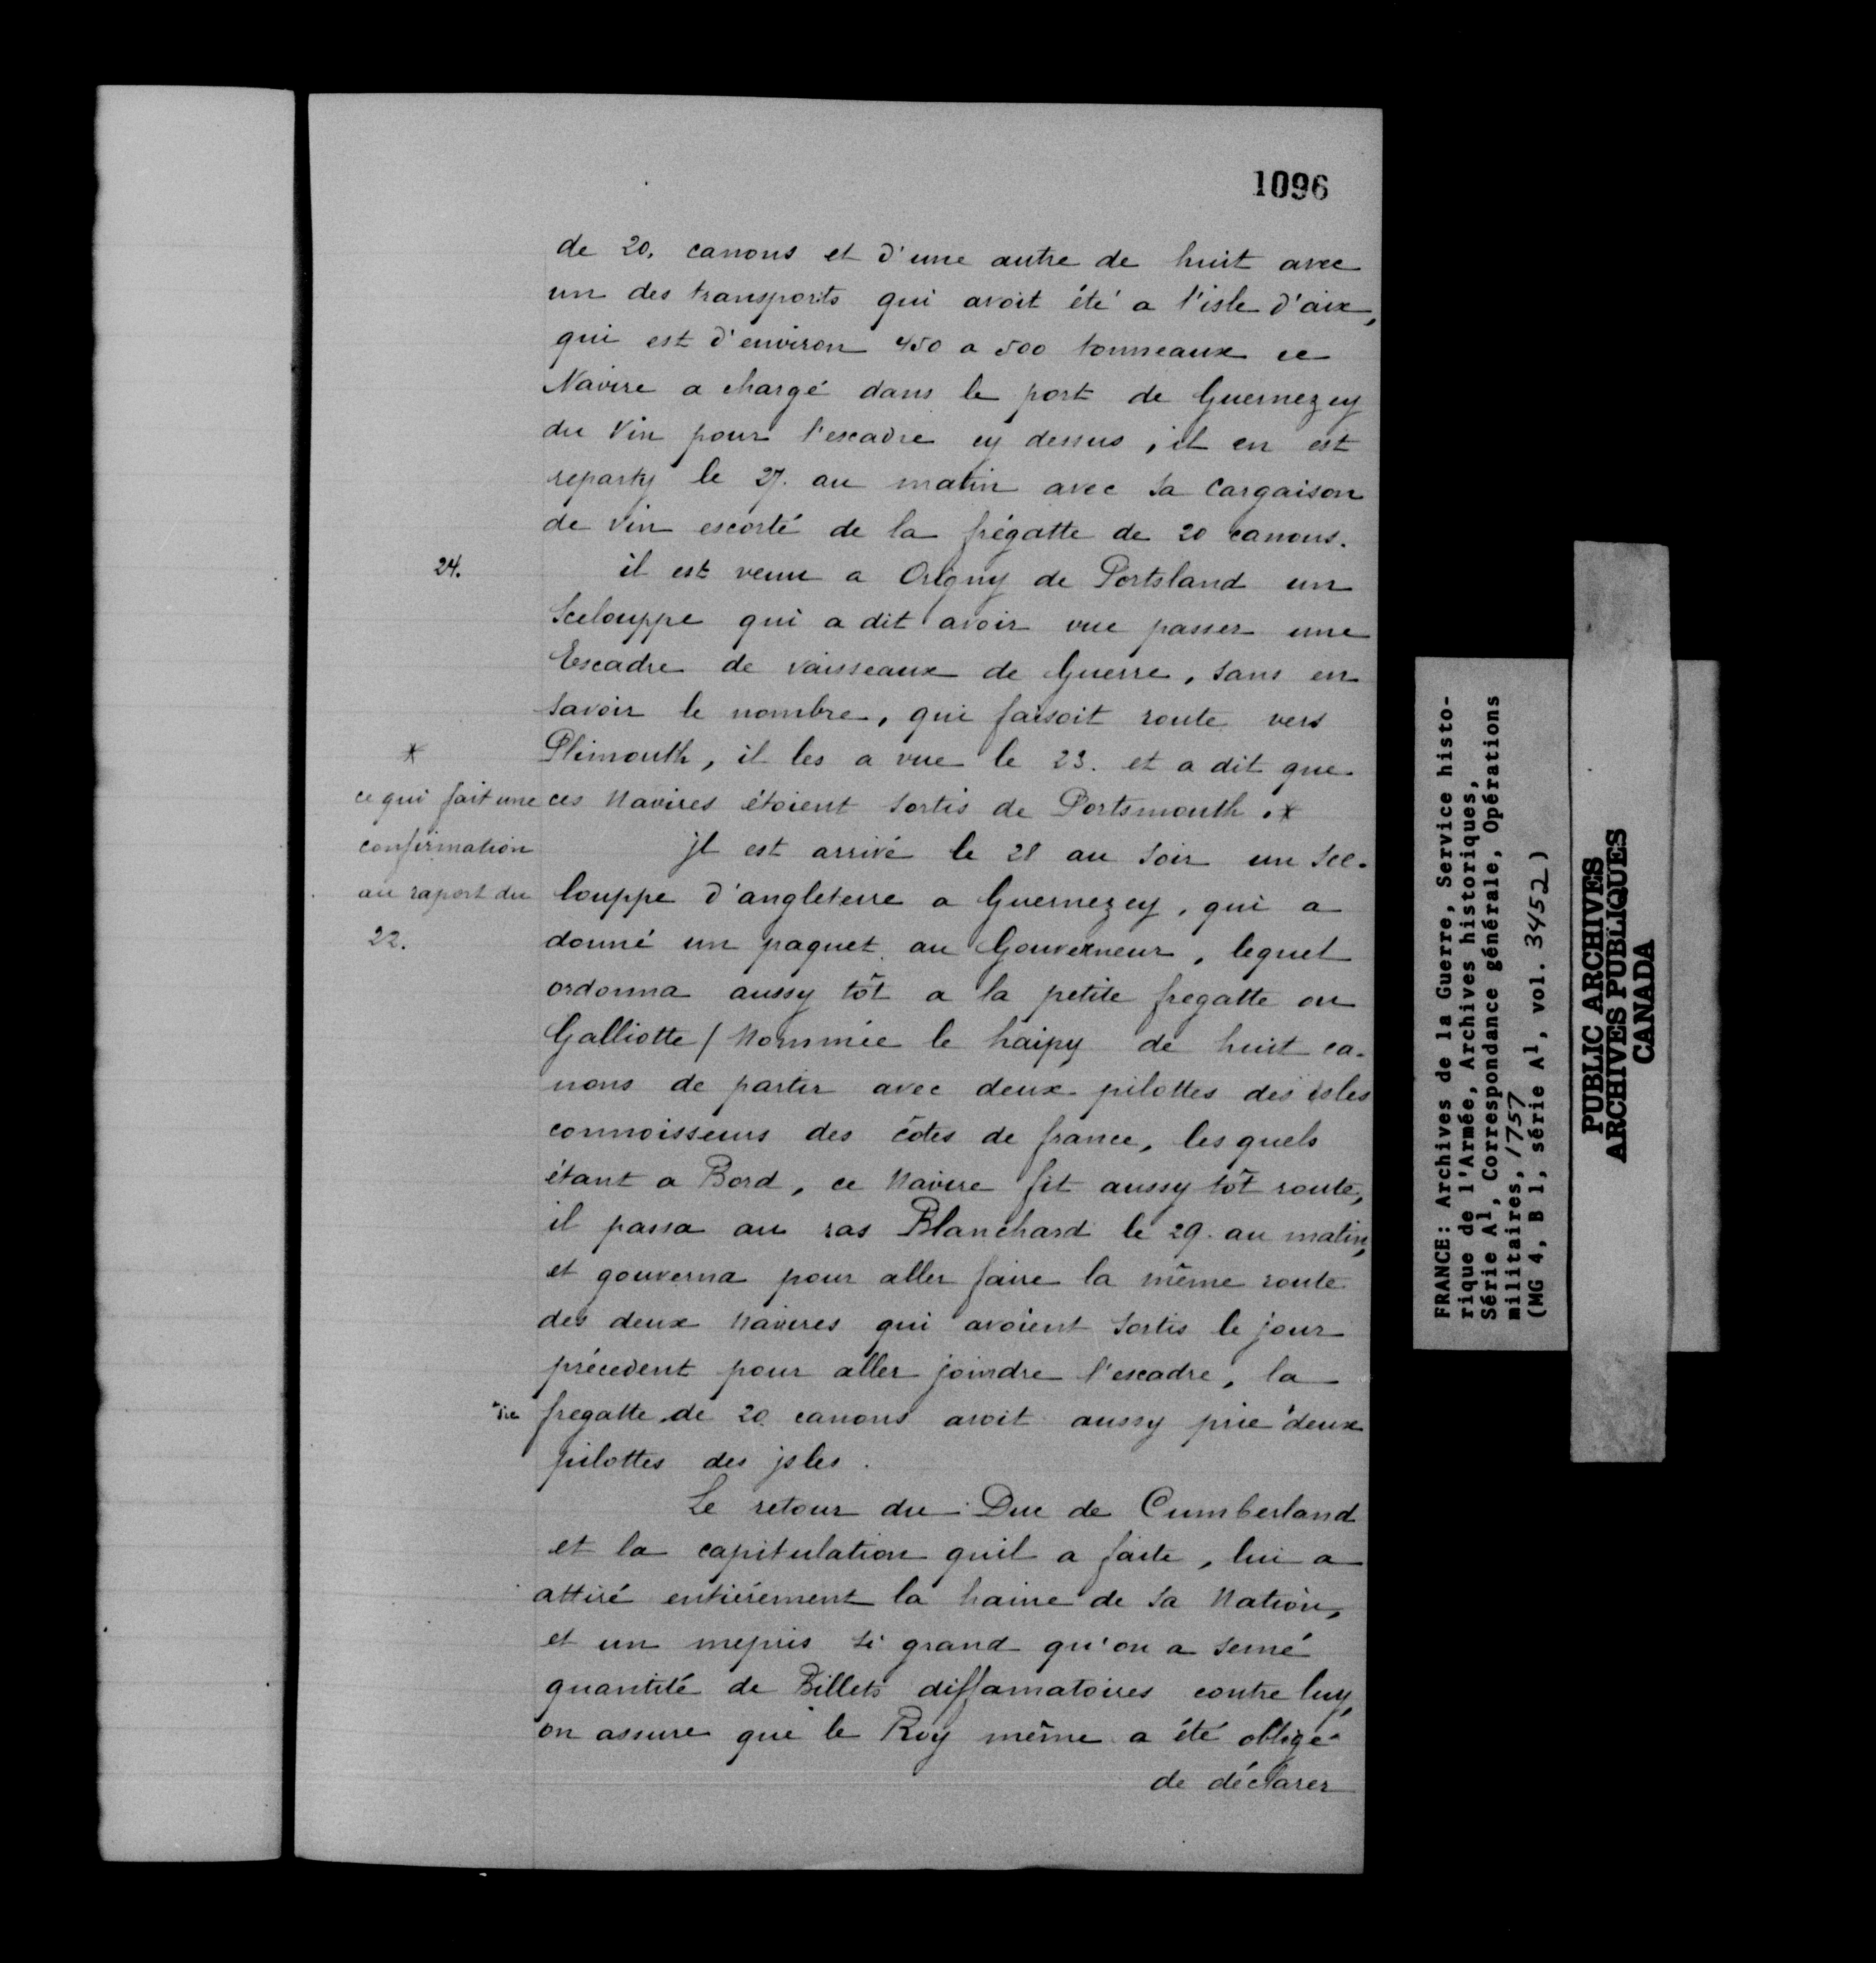 1096
de 20. canons et d'une autre de huit avec
un des transports qui avoit été a l'isle d'aix,
qui est d'environ 450 a 500 tonneaux ce
Navire a chargé dans le port de Guernezey
du Vin pour l'escadre cy dessus, il en est
reparty le 27. au matin avec sa Cargaison
de Vin escorté de la frégatte de 20 canons.
24.
il est venu a Origny de Portsland un
Scelouppe qui a dit avoir vue passer une
Escadre de vaisseaux de Guerre, sans en
savoir le nombre, qui faisoit route vers
Plimouth, il les a vue le 23. et a dit que
ces Navires étoient sortis de Portsmouth. *
*
ce qui fait une
confirmation
au raport du
22.
Jl est arrivé le 28 au soir un Sce-
louppe d'angleterre a Guernezey, qui a
donné un paquet au Gouverneur, lequel
ordonna aussy tôt a la petite fregatte ou
Galliotte / Nommée le haipy de huit ca-
nons de partir avec deux pilottes des isles
connoisseurs des côtes de france, les quels
étant a Bord, ce Navire fit aussy tôt route,
il passa au ras Blanchard le 29. au matin,
et gouverna pour aller faire la même route
des deux Navires qui avoient sortis le jour
précedent pour aller joindre l'escadre, la
"sic fregatte de 20. canons avoit aussy prie" deux
pilottes des jsles.
Le retour du Duc de Cumberland
et la capitulation quil a faite, lui a
attiré entiérement la haine de sa Nation,
et un mepris si grand qu'on a semé
quantité de Billets diffamatoires contre luy,
on assure que le Roy même a été obligé
de déclarer
FRANCE: Archives de la Guerre, Service histo-
rique de l'Armée, Archives historiques,
Série A1, Correspondance générale, Opérations
militaires, 1757
(MG 4, B 1, série A1, vol. 3452)
PUBLIC ARCHIVES
ARCHIVES PUBLIQUES
CANADA